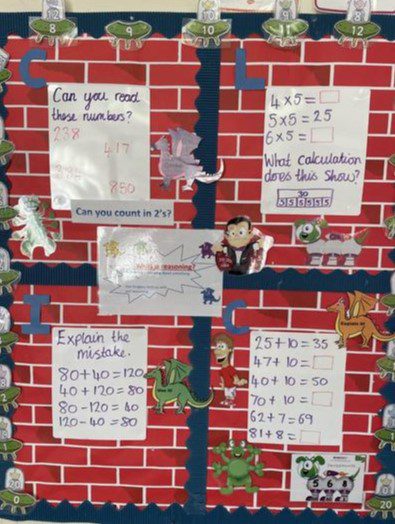 8
9
10
11
12
C
L
Can you read
these numbers?
238
417
850
4 × 5 = □
5 × 5 = 25
6 × 5 = □
What calculation
does this show?
30
5 5 5 5 5 5
Can you count in 2's?
reasoning?
I
C
Explain the
mistake.
80 + 40 = 120
40 + 120 = 80
80 - 120 = 40
120 - 40 = 80
25 + 10 = 35
47 + 10 = □
40 + 10 = 50
70 + 10 = □
62 + 7 = 69
81 + 8 = □
Explain it!
5 6 8
0
20